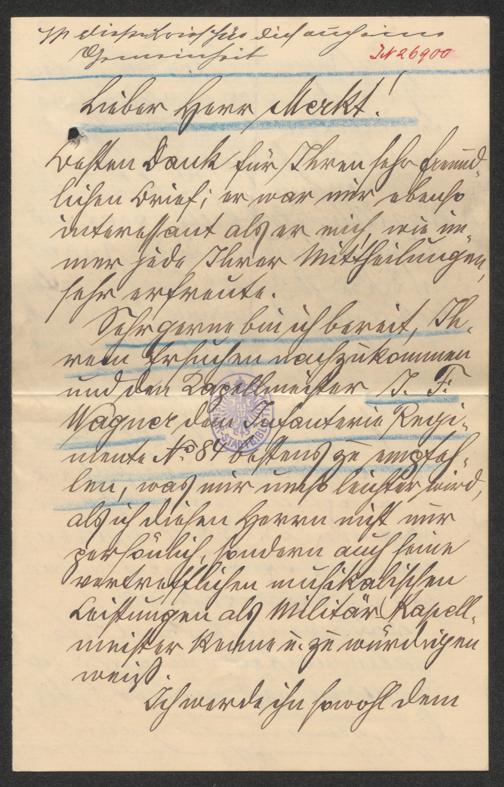 JN 26900
Lieber Herr Merkt!
Besten Dank für Ihren sehr freund-
lichen Brief; er war mir ebenso
interessant als er mich, wie im-
mer jede Ihrer Mittheilungen,
sehr erfreute.
Sehr gerne bin ich bereit, Ih-
rem Ersuchen nachzukommen
und den Kapellmeister J. F.
Wagner dem Infanterie Regi-
mente No 84 bestens zu empfeh-
len, was mir umso leichter wird,
als ich diesen Herrn nicht nur
persönlich, sondern auch seine
vortrefflichen musikalischen
Leistungen als Militär Kapell-
meister kenne u. zu würdigen
weiß.
Ich werde ihn sowohl dem